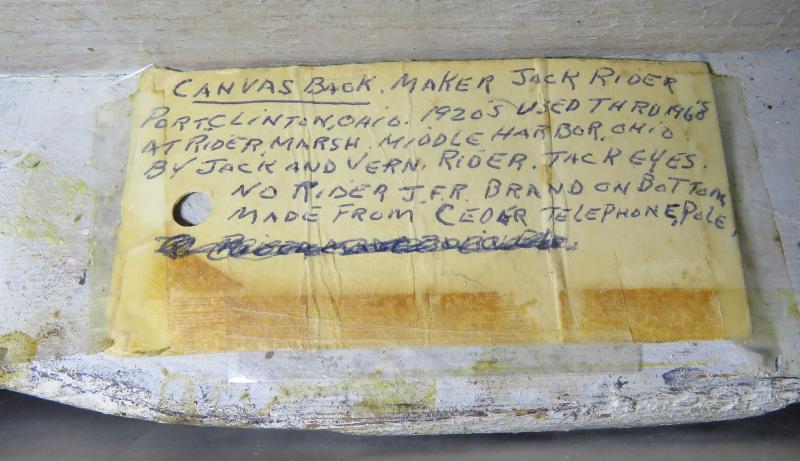 CANVAS BACK. MAKER JACK RIDER
PORT CLINTON, OHIO. 1920'S USED THRU 1968'S
AT RIDER, MARSH. MIDDLE HARBOR, OHIO
BY JACK AND VERN. RIDER. TACK EYES.
NO RIDER J.F.R. BRAND ON BOTTOM,
MADE FROM CEDAR TELEPHONE, POLE,